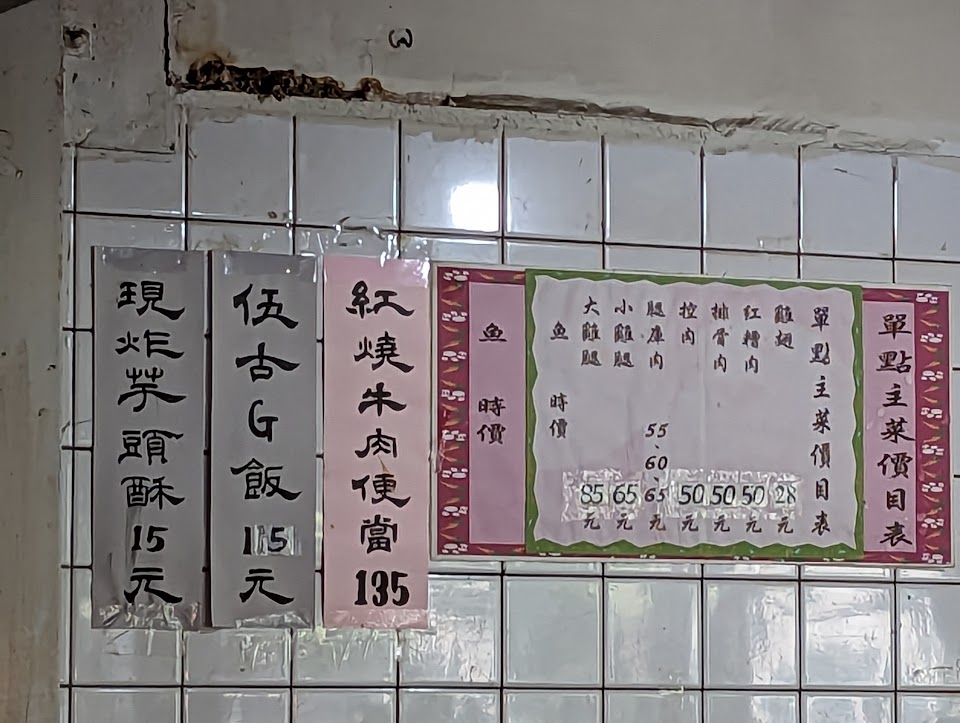 單點主菜價目表
單點主菜價目表
雞翅 28元
紅糟肉 50元
排骨肉 50元
控肉 50元
腿庫肉 55、60、65元
小雞腿 65元
大雞腿 85元
鱼 時價
鱼 時價
紅燒牛肉便當135
伍古G飯115元
現炸芋頭酥15元